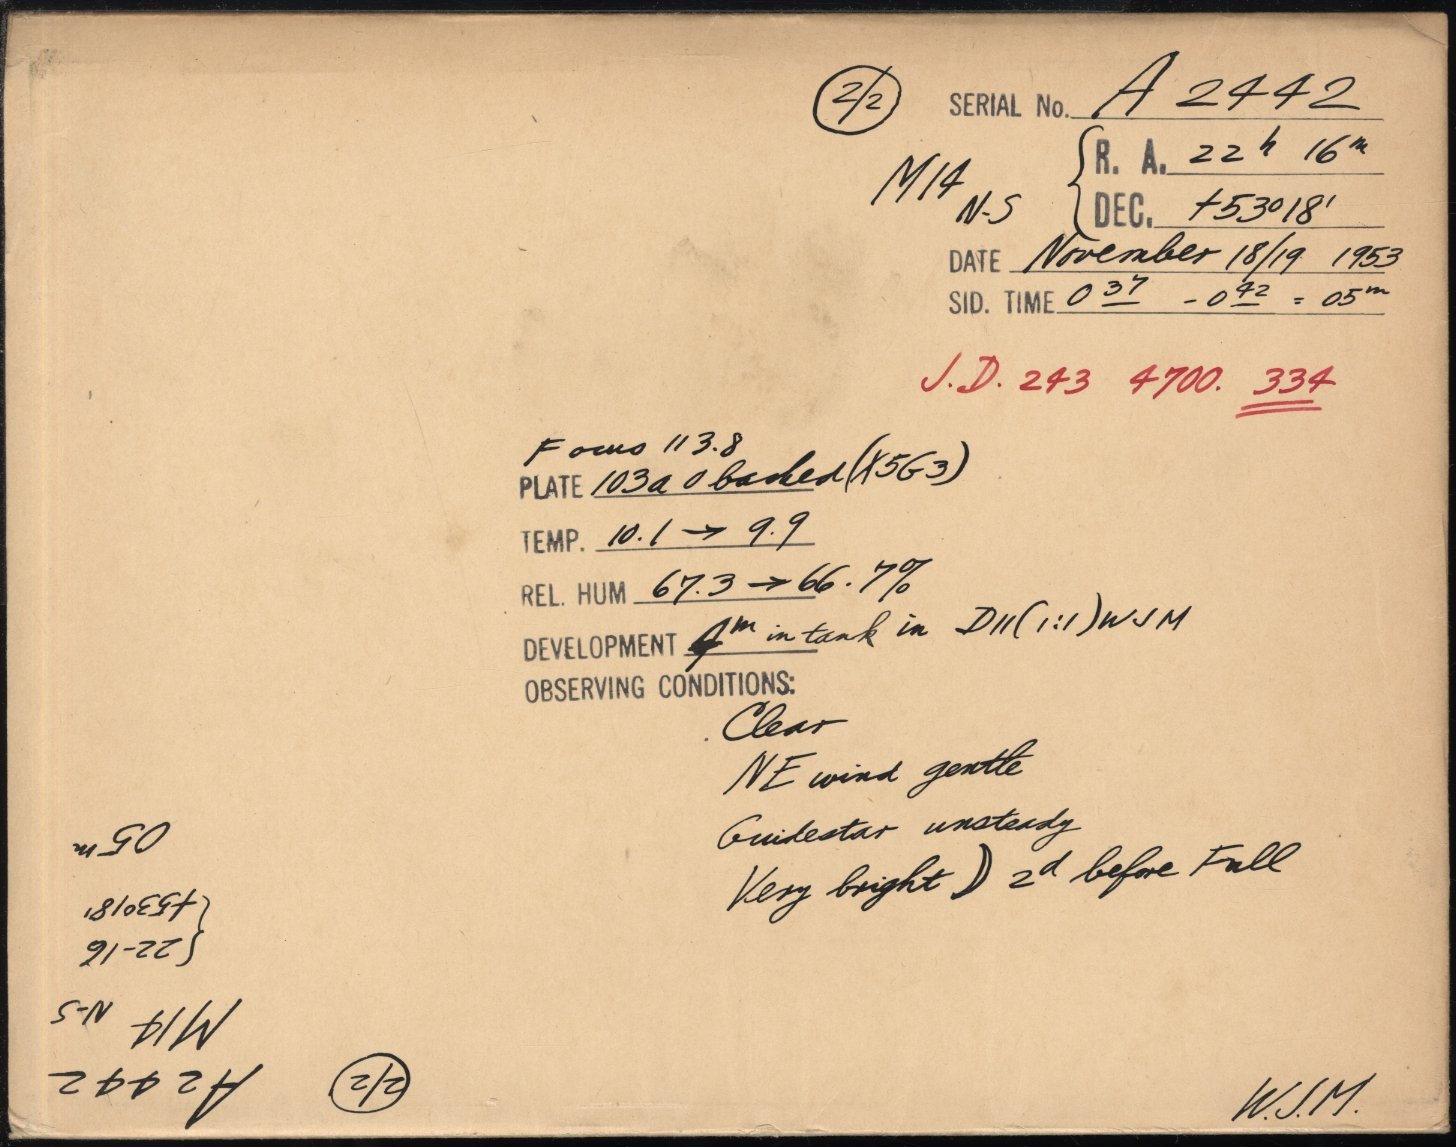 2/2
SERIAL No. A 2442
M14 N-S
R. A. 22h 16m
DEC. +53°18'
DATE November 18/19 1953
SID. TIME 0 37 - 0 42 = 05m
J.D. 243 4700. 334
Focus 113.8
PLATE 103a O backed (X5G3)
TEMP. 10.1 → 9.9
REL. HUM 67.3 → 66.7%
DEVELOPMENT 4m in tank in D11(1:1) WJM
OBSERVING CONDITIONS:
Clear
NE wind gentle
Guidestar unsteady
Very bright ☽ 2d before Full
A2442
2/2
M14 N-S
22-16
+53°18'
05m
W.J.M.